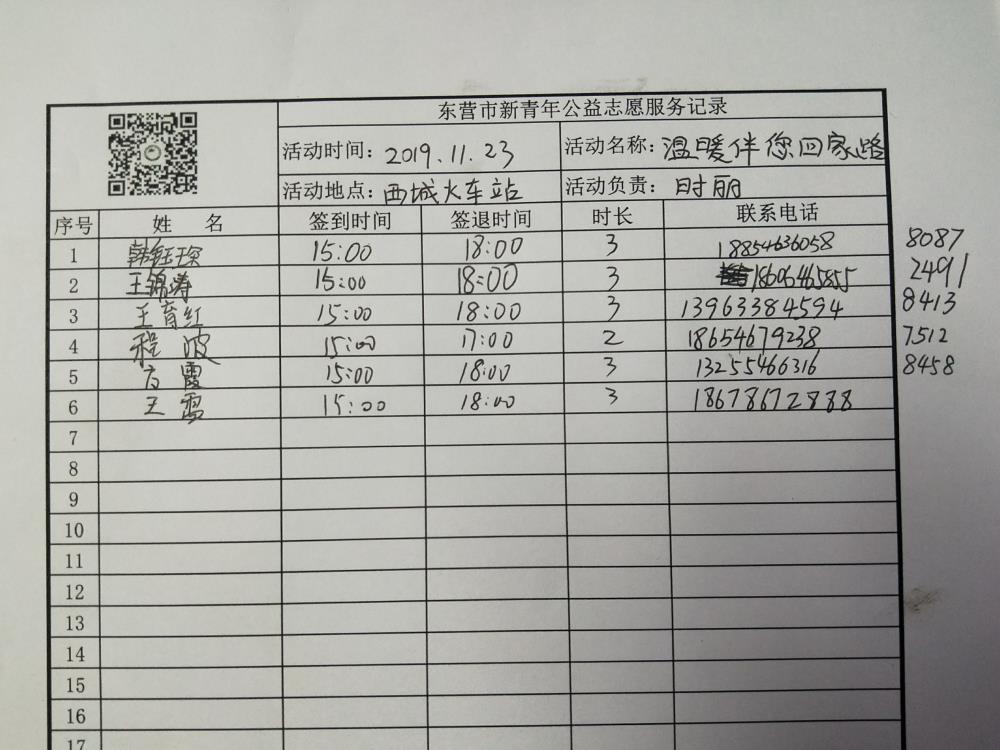 东营市新青年公益志愿服务记录
活动时间：2019.11.23 活动名称：温暖伴您回家路
活动地点：西城火车站 活动负责：时丽
序号 姓 名 签到时间 签退时间 时长 联系电话
1 韩钰琮 15:00 18:00 3 18854636058 8087
2 王锦涛 15:00 18:00 3 18606465855 2491
3 王育红 15:00 18:00 3 13963384594 8413
4 程波 15:00 17:00 2 18654679238 7512
5 方霞 15:00 18:00 3 13255466316 8458
6 王雪 15:00 18:00 3 18678672888
7
8
9
10
11
12
13
14
15
16
17